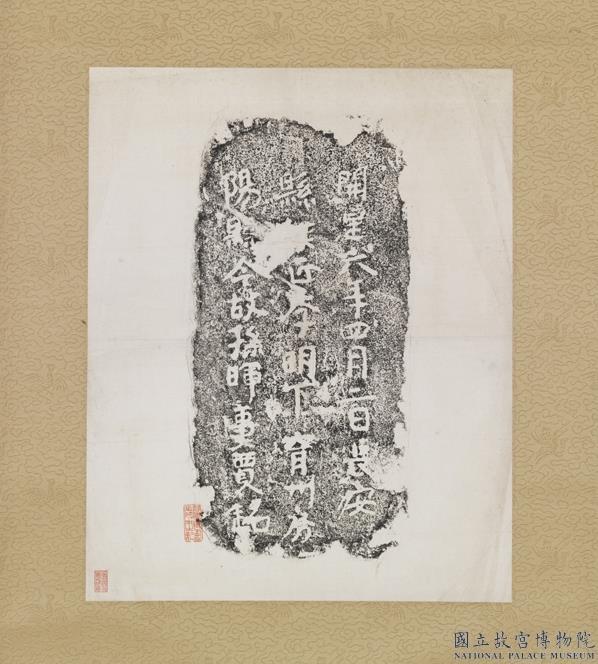 開皇六年四月日豊安
縣李明下育州
陽縣令故孫暉妻賈銘
國立故宮博物院
NATIONAL PALACE MUSEUM